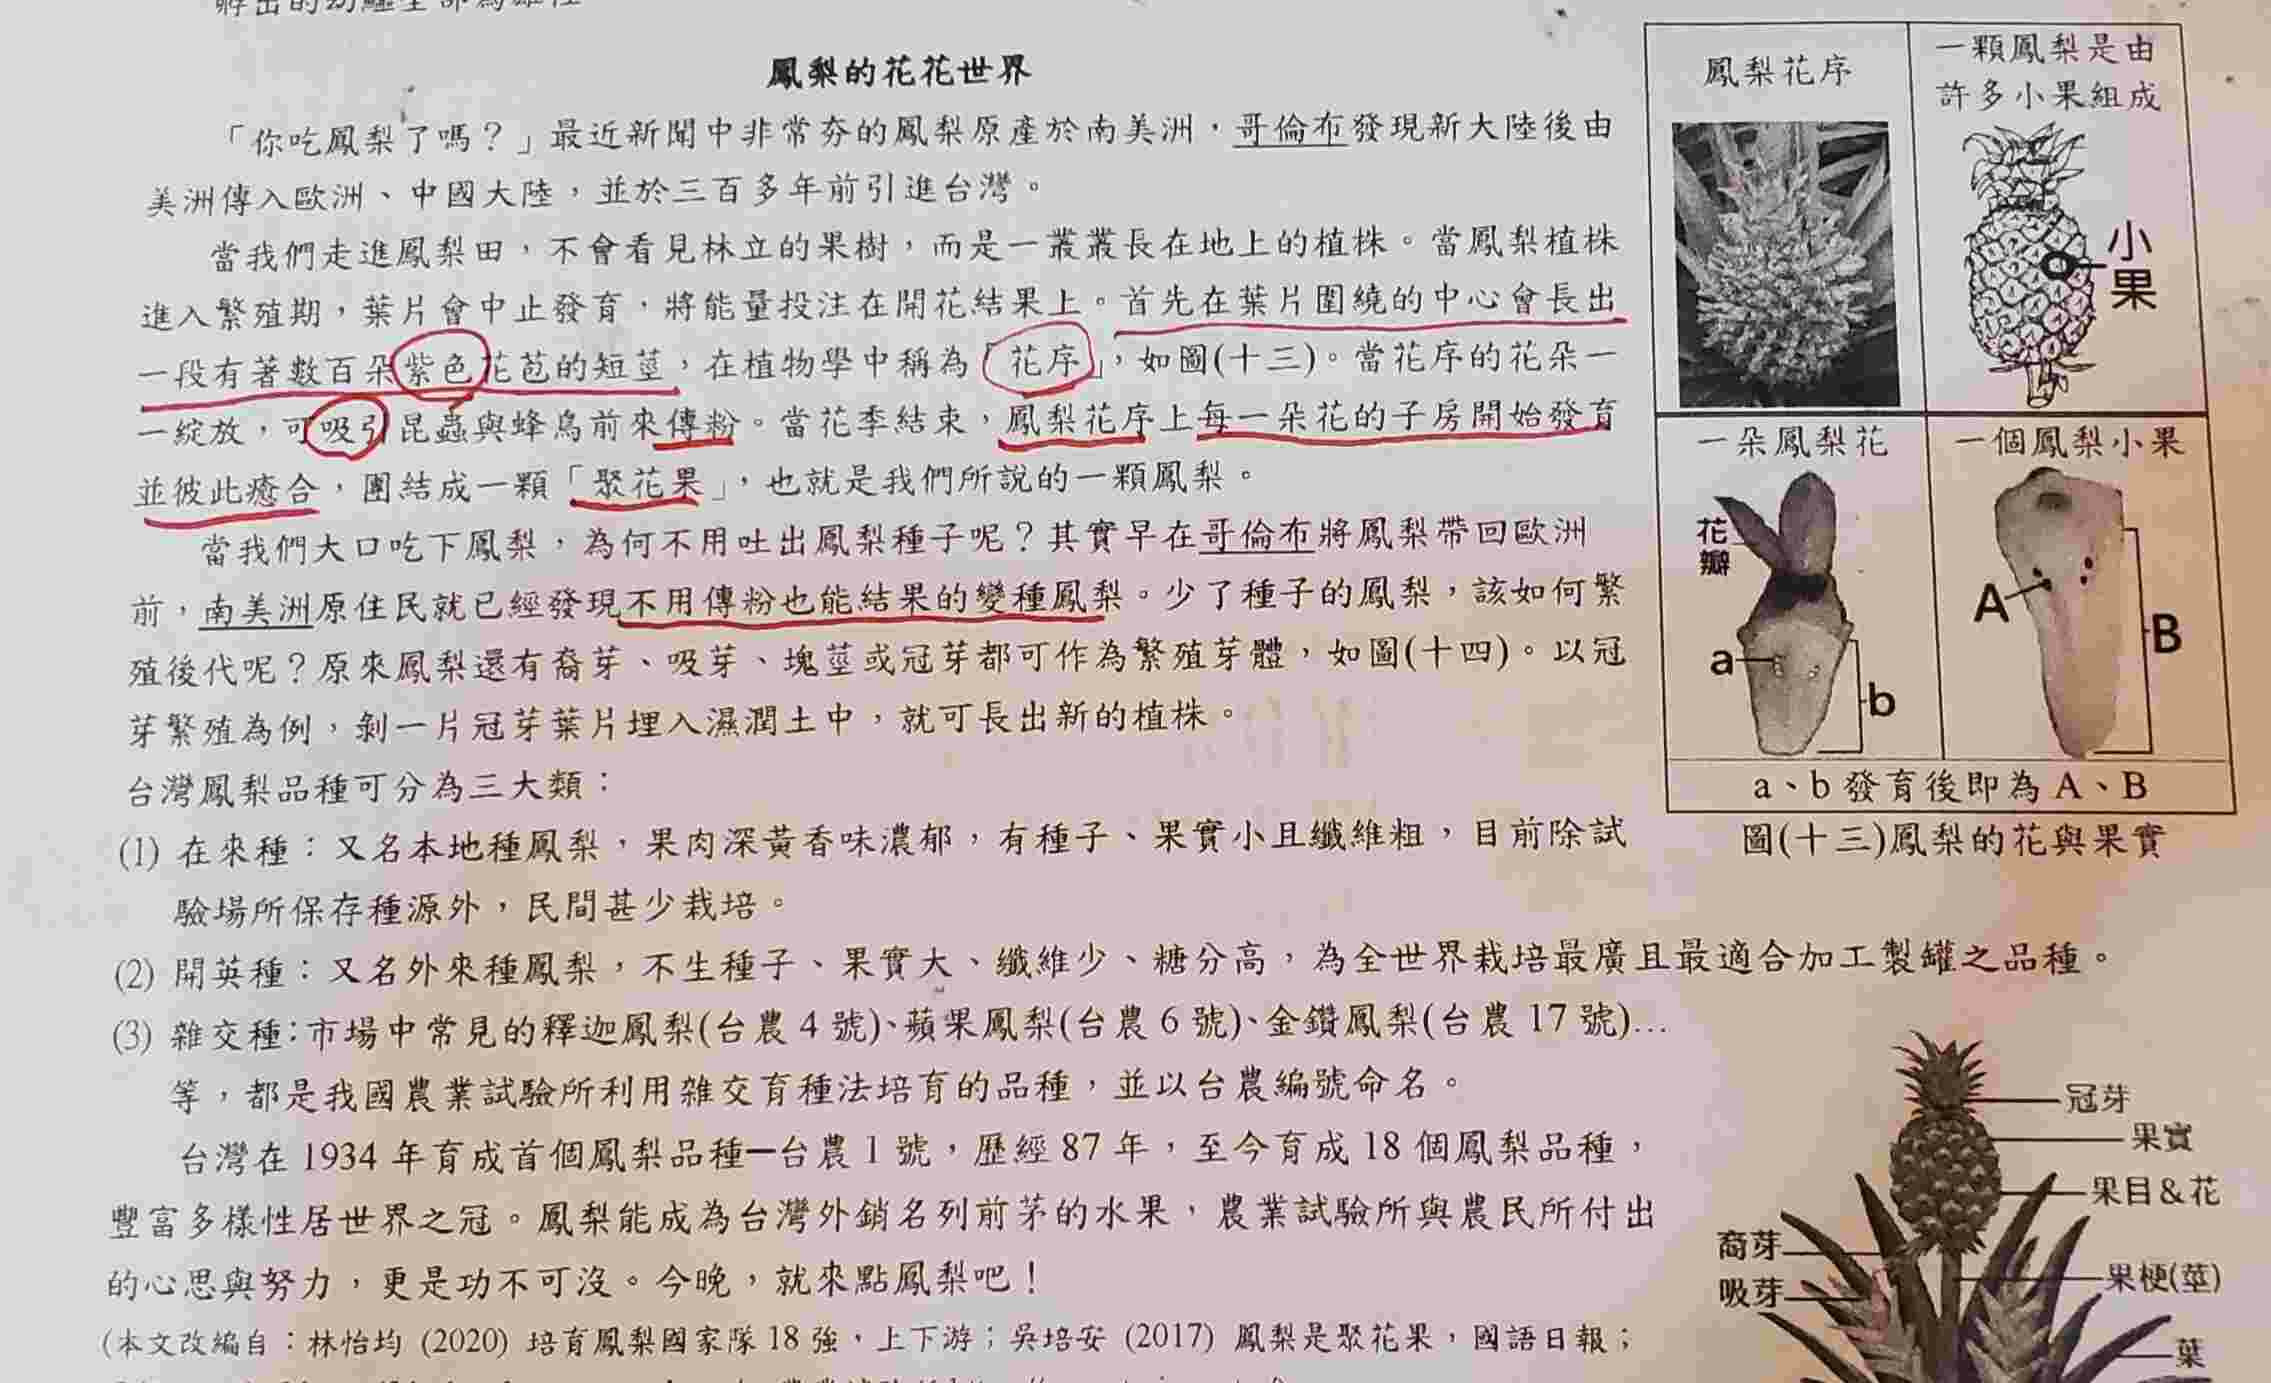 孵出的幼鱷全部為雄性
鳳梨的花花世界
「你吃鳳梨了嗎？」最近新聞中非常夯的鳳梨原產於南美洲，哥倫布發現新大陸後由
美洲傳入歐洲、中國大陸，並於三百多年前引進台灣。
當我們走進鳳梨田，不會看見林立的果樹，而是一叢叢長在地上的植株。當鳳梨植株
進入繁殖期，葉片會中止發育，將能量投注在開花結果上。首先在葉片圍繞的中心會長出
一段有著數百朵紫色花苞的短莖，在植物學中稱為「花序」，如圖(十三)。當花序的花朵一
一綻放，可吸引昆蟲與蜂鳥前來傳粉。當花季結束，鳳梨花序上每一朵花的子房開始發育
並彼此癒合，團結成一顆「聚花果」，也就是我們所說的一顆鳳梨。
當我們大口吃下鳳梨，為何不用吐出鳳梨種子呢？其實早在哥倫布將鳳梨帶回歐洲
前，南美洲原住民就已經發現不用傳粉也能結果的變種鳳梨。少了種子的鳳梨，該如何繁
殖後代呢？原來鳳梨還有裔芽、吸芽、塊莖或冠芽都可作為繁殖芽體，如圖(十四)。以冠
芽繁殖為例，剝一片冠芽葉片埋入濕潤土中，就可長出新的植株。
台灣鳳梨品種可分為三大類：
(1) 在來種：又名本地種鳳梨，果肉深黃香味濃郁，有種子、果實小且纖維粗，目前除試
驗場所保存種源外，民間甚少栽培。
(2) 開英種：又名外來種鳳梨，不生種子、果實大、纖維少、糖分高，為全世界栽培最廣且最適合加工製罐之品種。
(3) 雜交種：市場中常見的釋迦鳳梨(台農 4 號)、蘋果鳳梨(台農 6 號)、金鑽鳳梨(台農 17 號)…
等，都是我國農業試驗所利用雜交育種法培育的品種，並以台農編號命名。
台灣在 1934 年育成首個鳳梨品種─台農 1 號，歷經 87 年，至今育成 18 個鳳梨品種，
豐富多樣性居世界之冠。鳳梨能成為台灣外銷名列前茅的水果，農業試驗所與農民所付出
的心思與努力，更是功不可沒。今晚，就來點鳳梨吧！
(本文改編自：林怡均 (2020) 培育鳳梨國家隊 18 強，上下游；吳培安 (2017) 鳳梨是聚花果，國語日報；
鳳梨花序
一顆鳳梨是由
許多小果組成
小果
一朵鳳梨花
花瓣
a
b
一個鳳梨小果
A
B
a、b 發育後即為 A、B
圖(十三)鳳梨的花與果實
冠芽
果實
果目＆花
裔芽
吸芽
果梗(莖)
葉